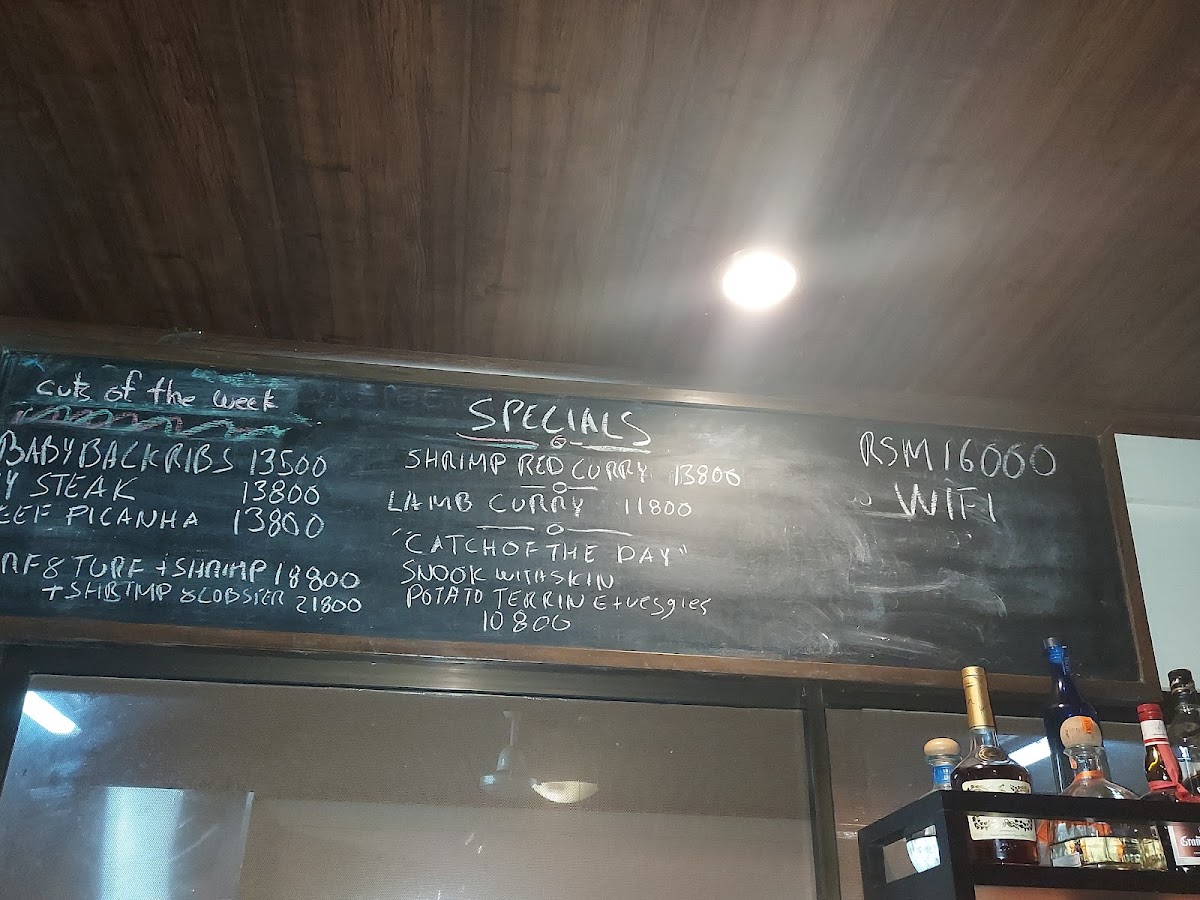 cuts of the week
BABYBACKRIBS 13500
Y STEAK 13800
EEF PICANHA 13800
RF & TURF + SHRIMP 18800
+ SHRIMP & LOBSTER 21800
SPECIALS
SHRIMP RED CURRY 13800
LAMB CURRY 11800
"CATCH OF THE DAY"
SNOOK WITH SKIN
POTATO TERRINE + veggies
10800
RSM16000
WIFI